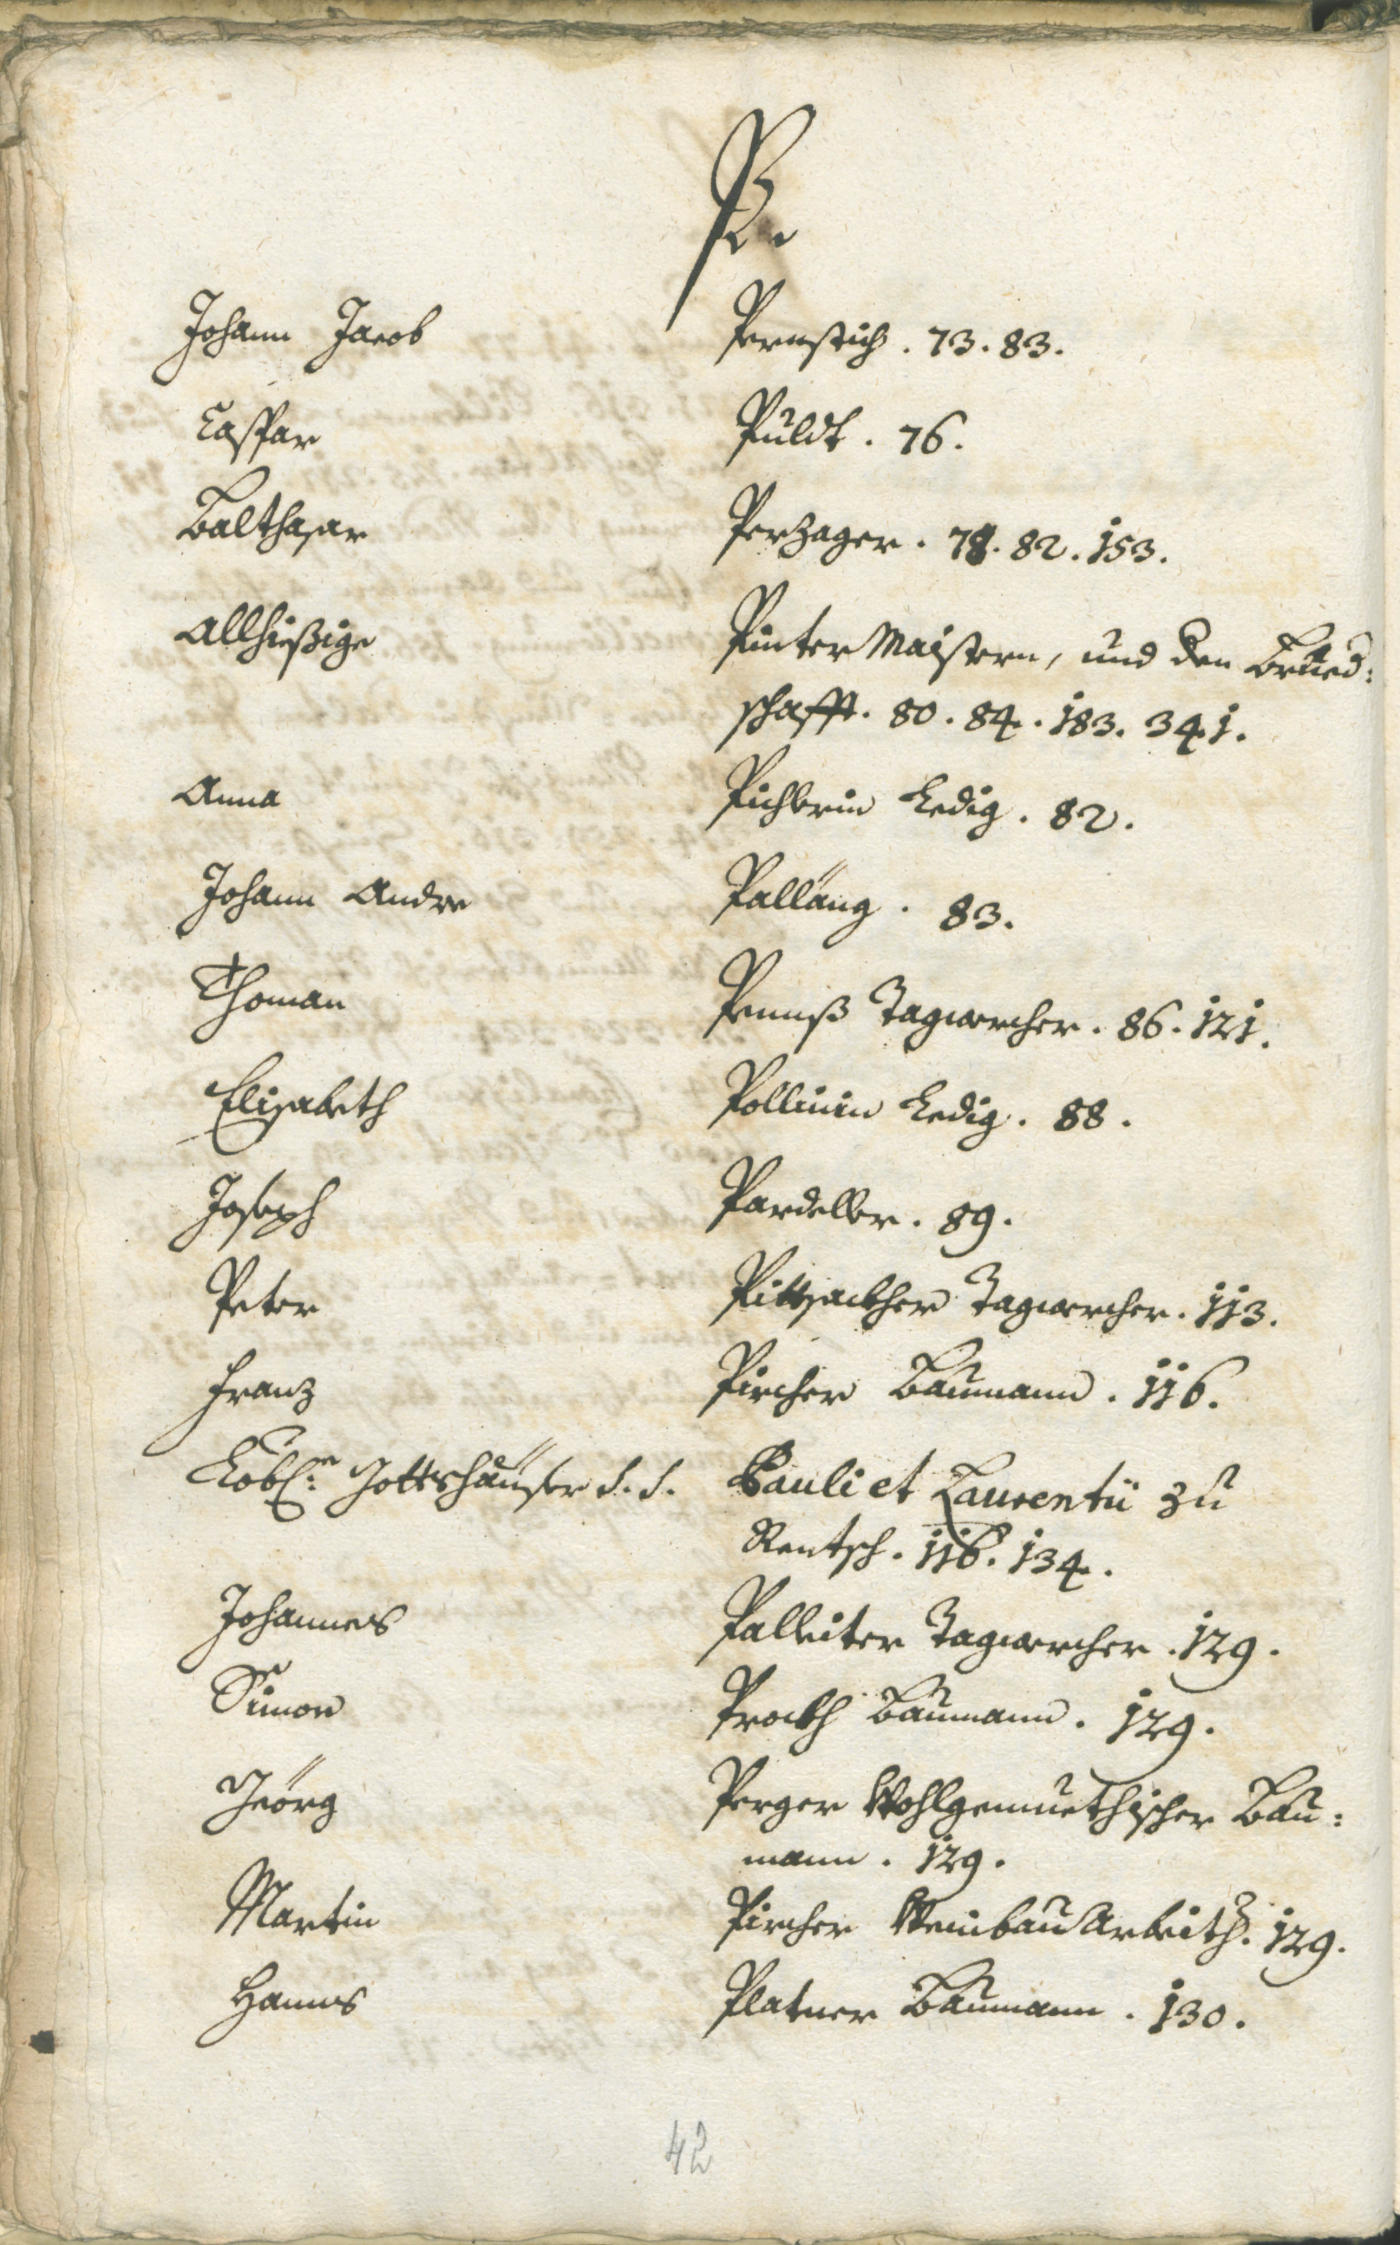 P.
Johann Jacob Pernstich . 73. 83.
Caspar Puldt . 76.
Balthasar Perzager . 78. 82. 153.
Allhießige Pinter Maistern, und den Brued:
schafft. 80. 84. 183. 341.
Anna Pichlerin Ledig . 82.
Johann Andre Palläng . 83.
Thoman Penuß Tagwercher . 86. 121.
Elisabeth Pollinin Ledig . 88.
Joseph Pardeller . 89.
Peter Pittsackher Tagwercher . 113.
Franz Pircher Baumann . 116.
Löbl: Gottshäuser S. S. Pauli et Laurentii zu
Rentsch . 116. 134.
Johannes Palleiter Tagwercher . 129.
Simon Prackh Baumann . 129.
Geörg Perger Wohlgemuethischer Bau:
mann . 129.
Martin Pircher Weinbau Arbeith. 129.
Hanns Platner Baumann . 130.
42